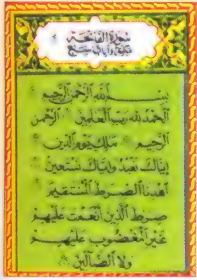 سورة الفاتحة
بسم الله الرحمن الرحيم
الحمد لله رب العالمين الرحمن
الرحيم ملك يوم الدين
إياك نعبد وإياك نستعين
اهدنا الصرط المستقيم
صرط الذين أنعمت عليهم
غير المغضوب عليهم
ولا الضالين